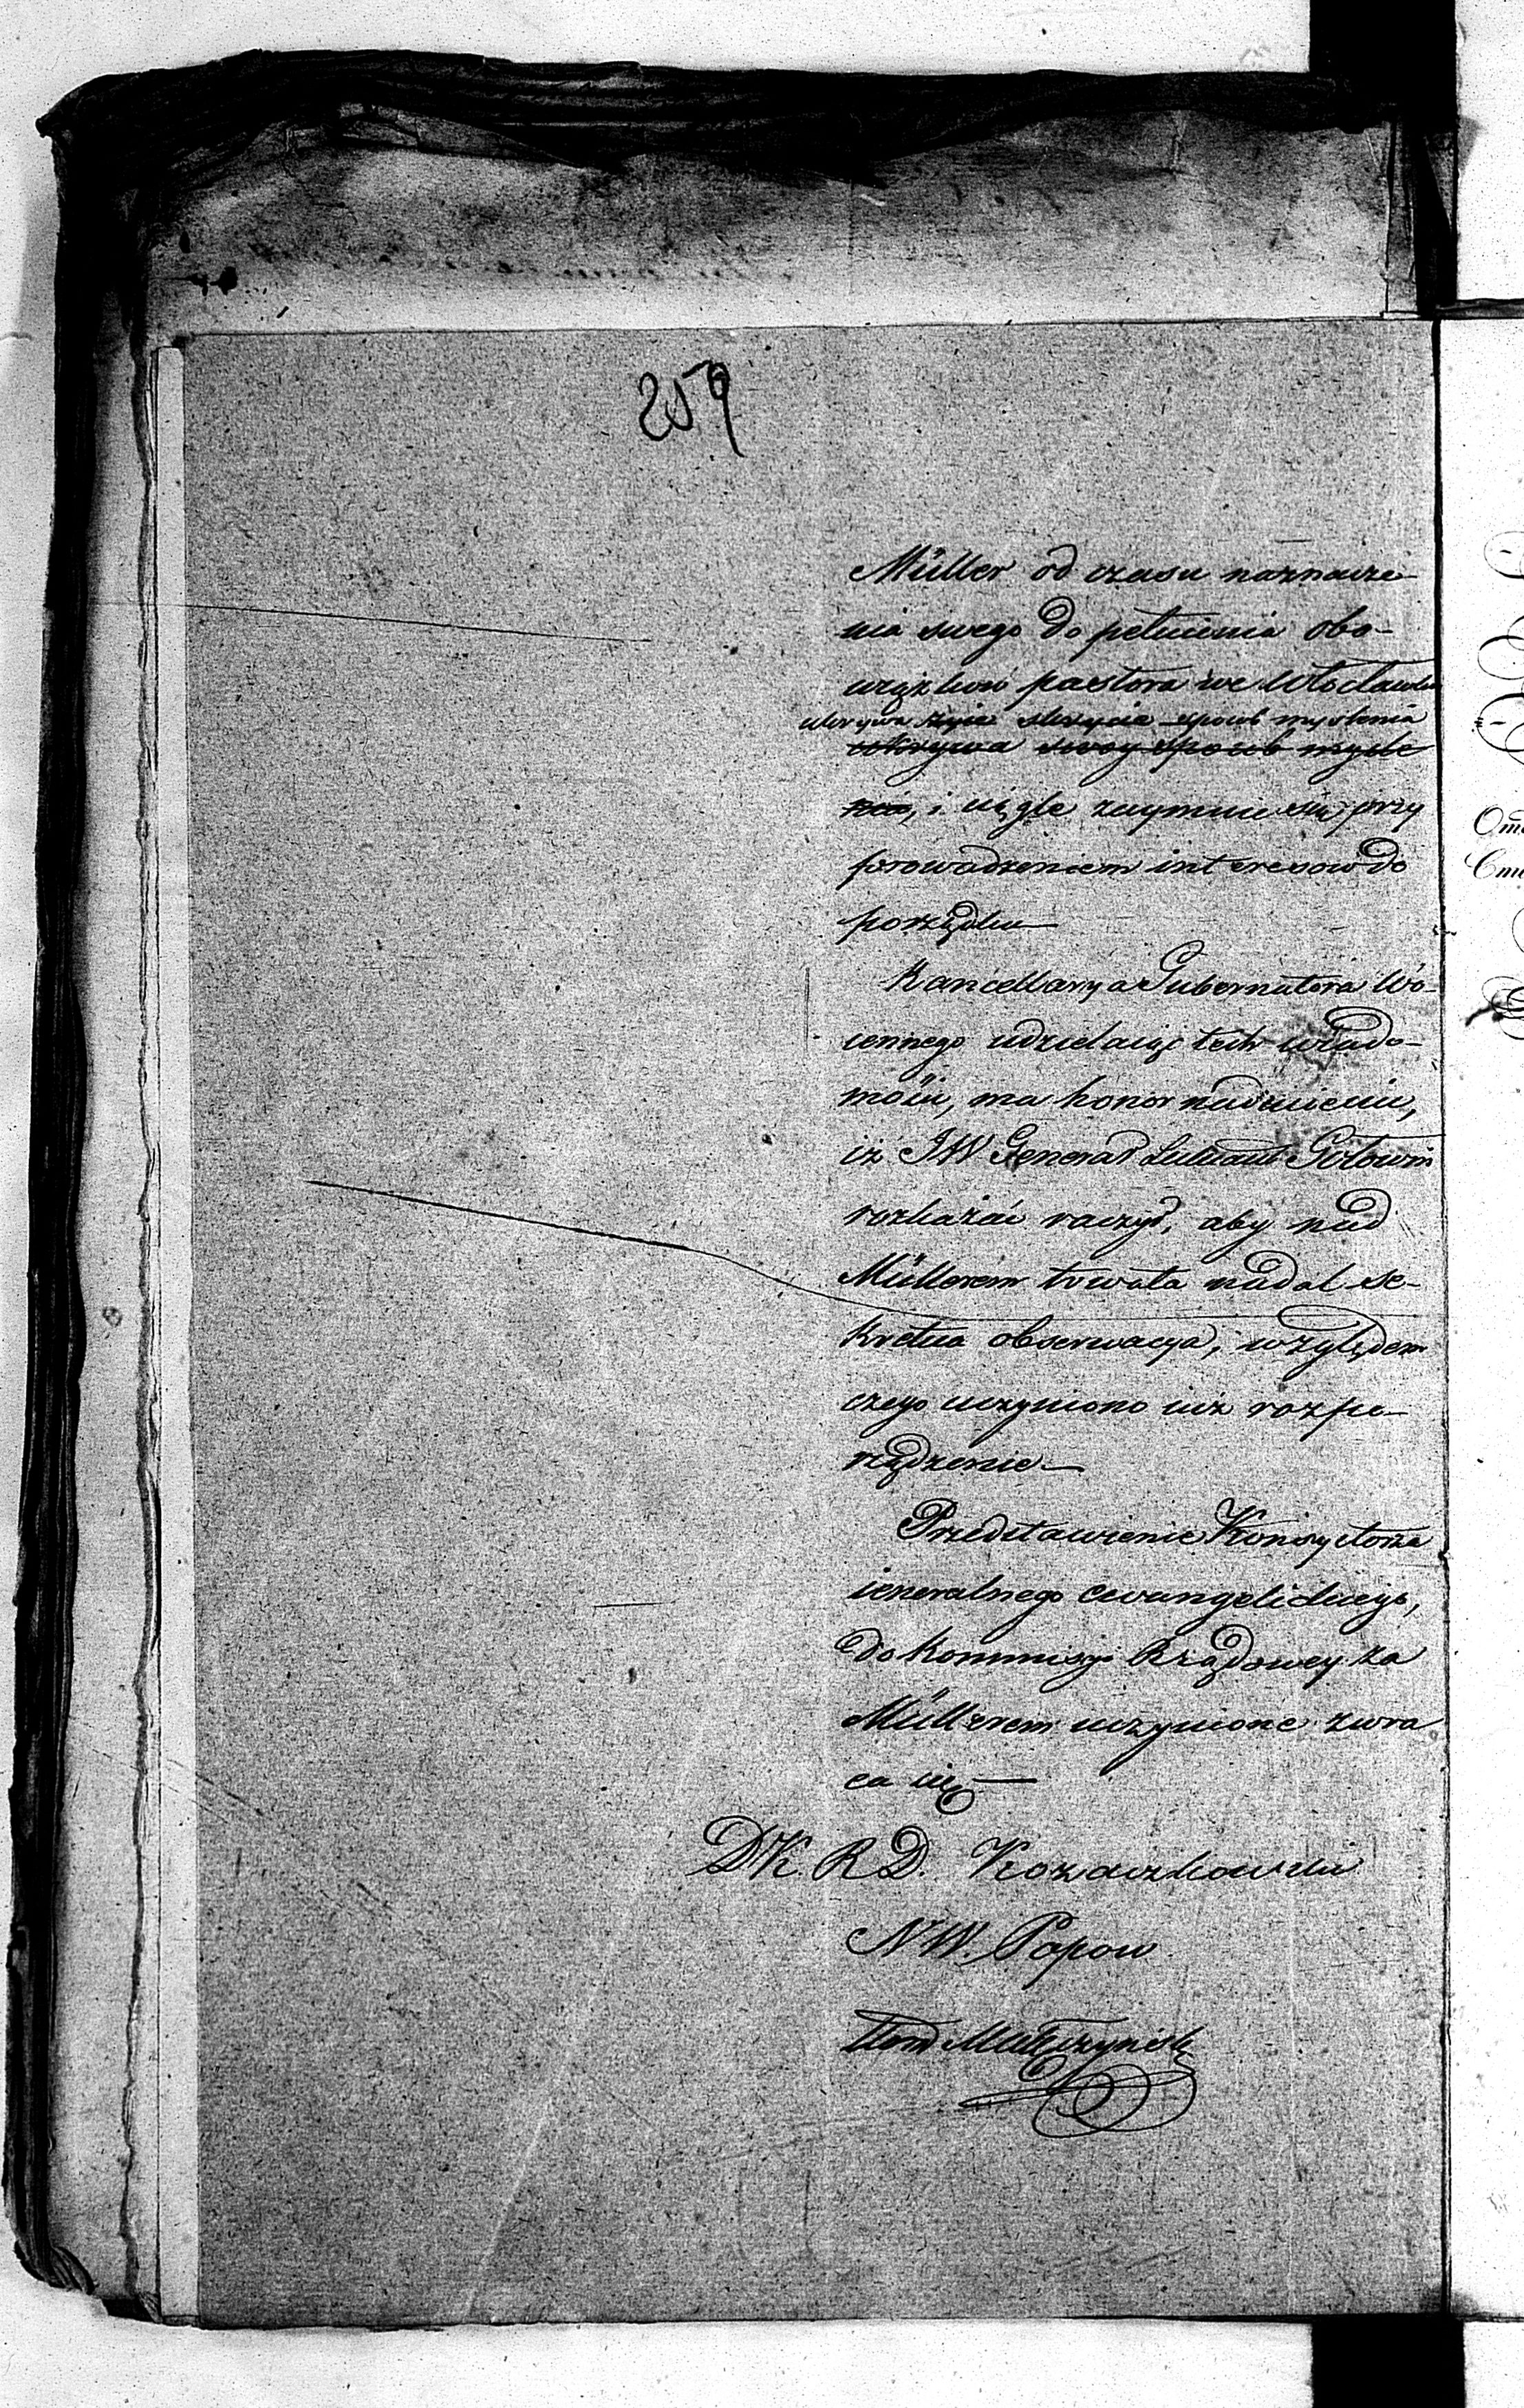 259
Müller od czasu naznacze-
nia swego do pełnienia obo-
wiązków pastora we Włocławku
ukrywa życie skrycie sposób myślenia
ukrywa swoy sposób myśle
nia, i ciągle zaymuie się przy
prowadzeniem interesow do
porządku
Kancellarya Gubernatora Wo-
iennego udzielaiąc tech wiado-
mości, ma honor nadmienić,
iż JW Generał Gołowin
rozkazać raczył, aby nad
Müllerem trwała nadal se-
kretna obserwacya, względem
czego uczyniono iuż rozpo-
rządzenie
Przedstawienie Konsystorza
ieneralnego ewangelickiego,
do Kommisyi Rządowey za
Müllerem uczynione zwra
ca się
D.K.R.D. Kozaczkowski
N.W. Popow